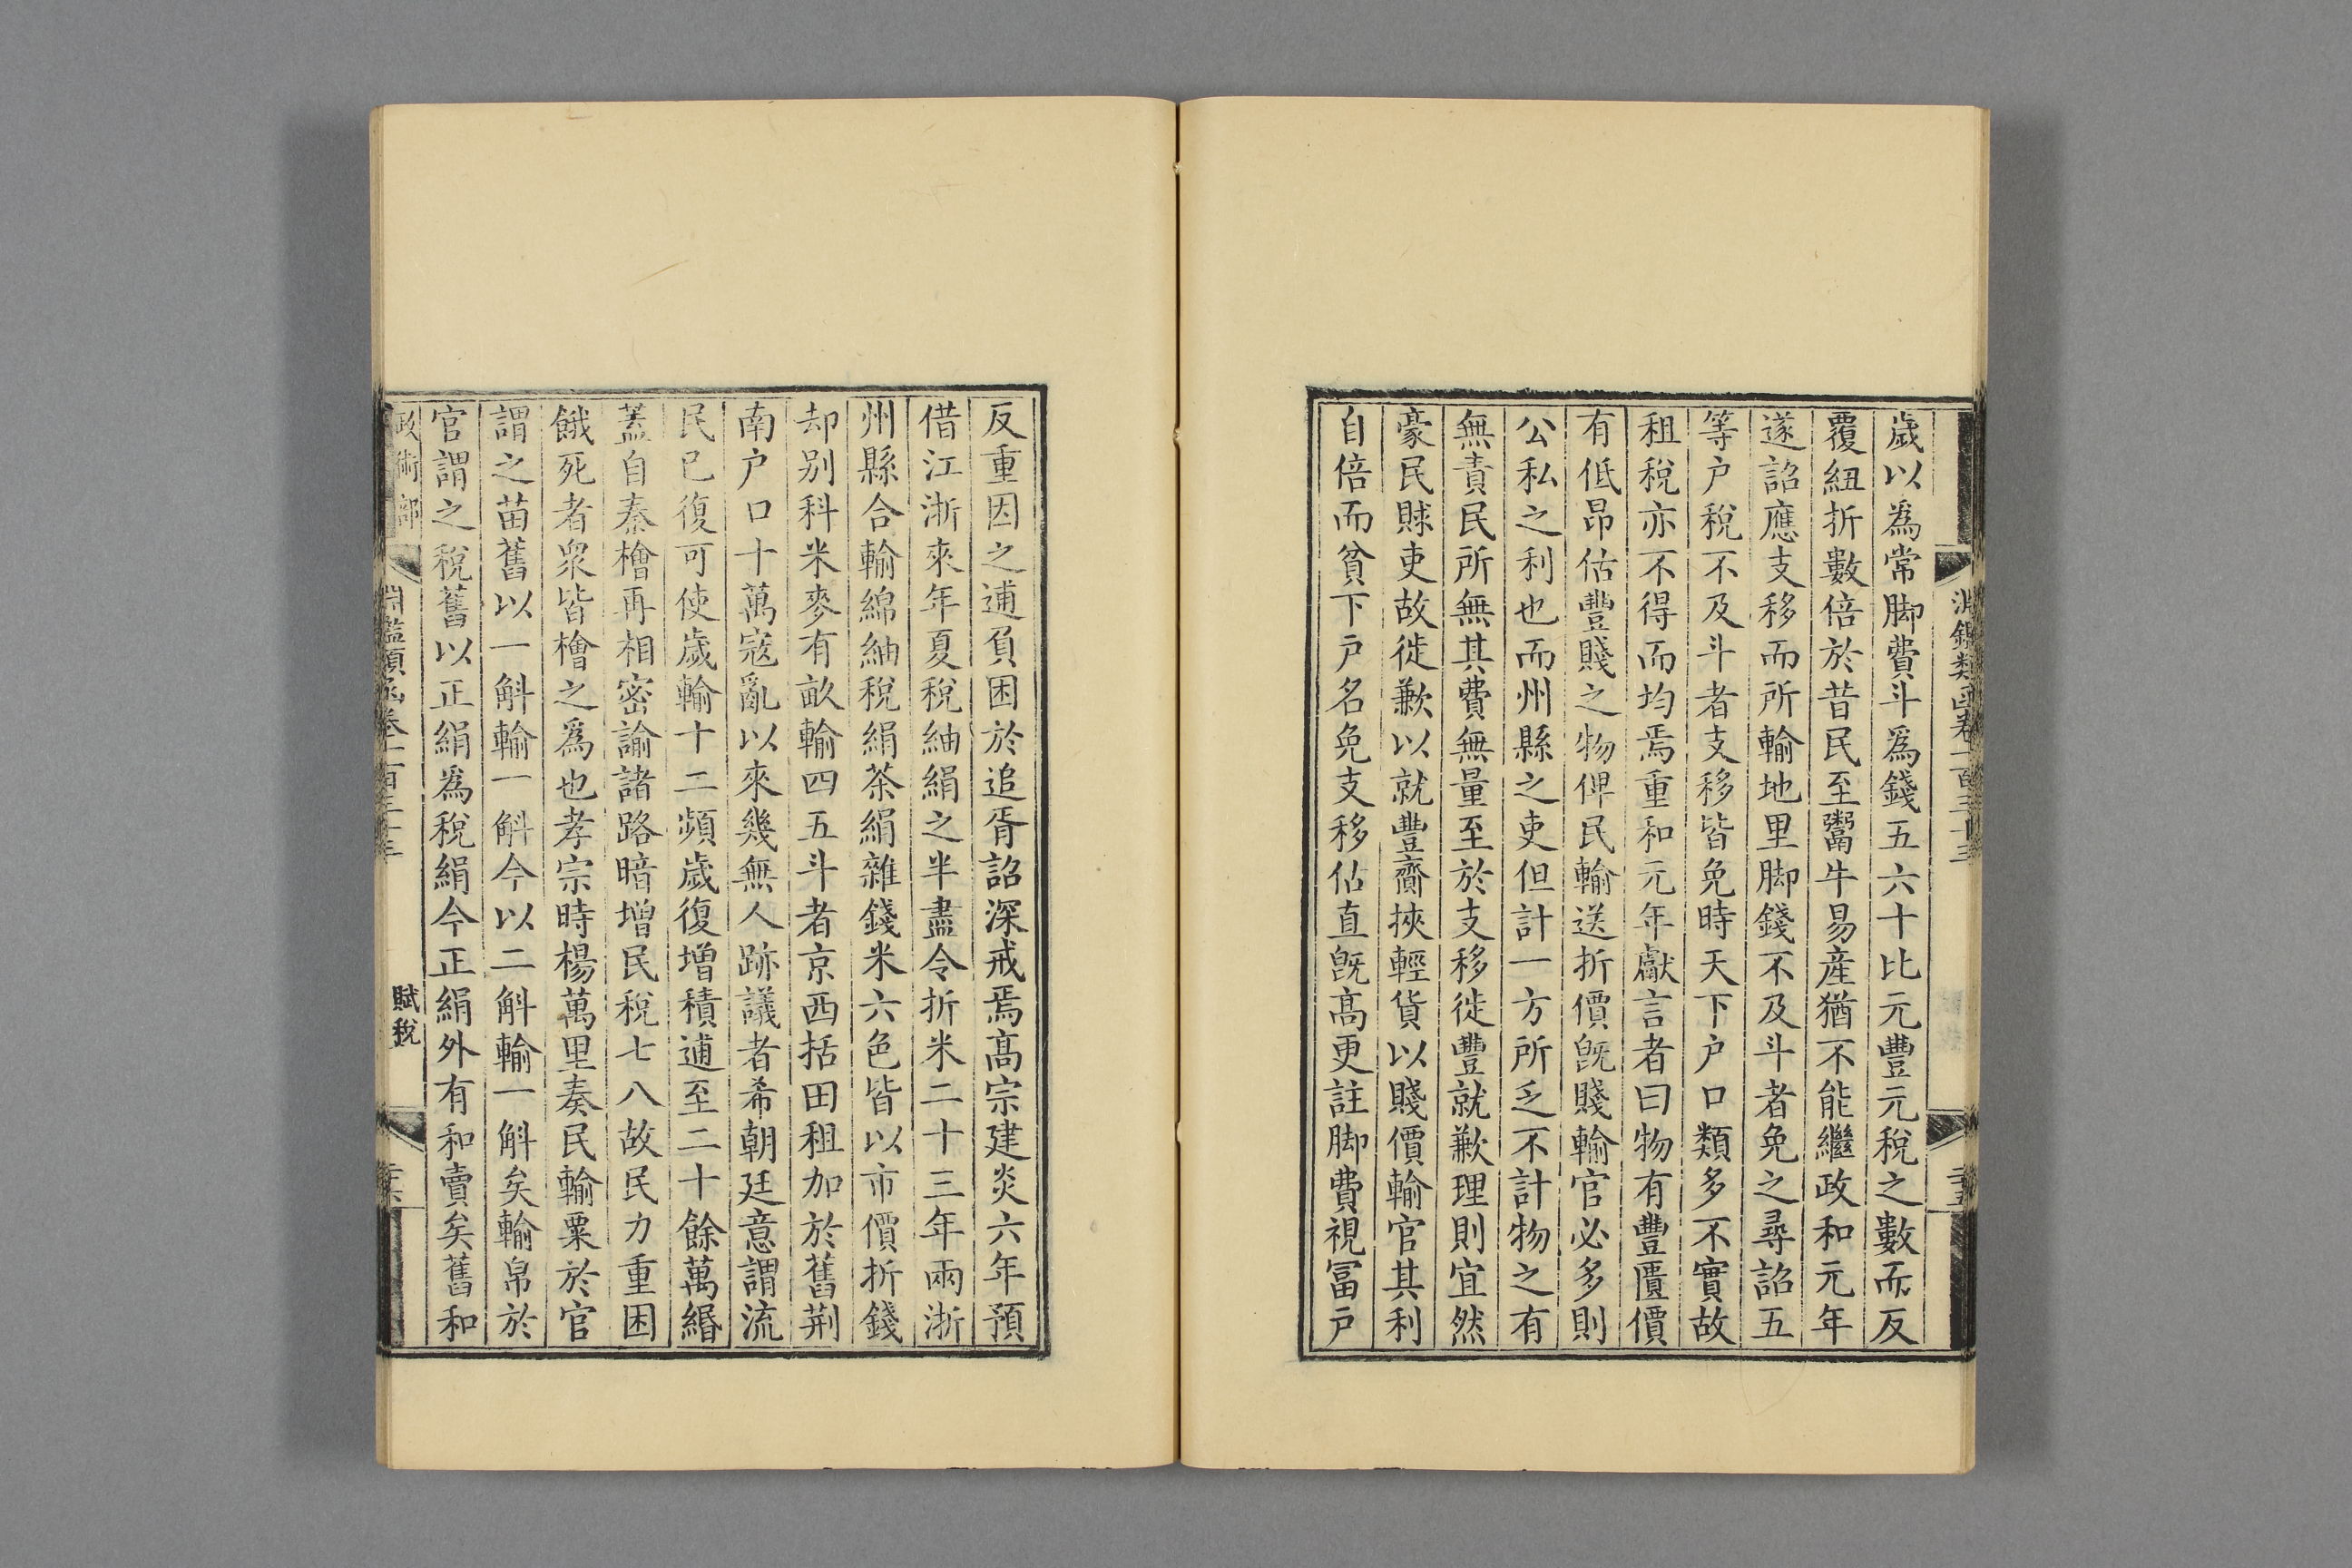 淵鑑類函卷一百三十三
歲以爲常脚費斗爲錢五六十比元豐元稅之數而反
覆紐折數倍於昔民至鬻牛易産猶不能繼政和元年
遂詔應支移而所輸地里脚錢不及斗者免之尋詔五
等户稅不及斗者支移皆免時天下户口類多不實故
租稅亦不得而均焉重和元年獻言者曰物有豐匱價
有低昂估豐賤之物俾民輸送折價旣賤輸官必多則
公私之利也而州縣之吏但計一方所乏不計物之有
無責民所無其費無量至於支移徙豐就歉理則宜然
豪民賕吏故徙歉以就豐齎挾輕貨以賤價輸官其利
自倍而貧下户名免支移估直旣髙更註脚費視冨户
反重因之逋負困於追胥詔深戒焉髙宗建炎六年預
借江浙來年夏稅紬絹之半盡令折米二十三年兩浙
州縣合輸綿紬稅絹茶絹雜錢米六色皆以市價折錢
却别科米麥有畝輸四五斗者京西括田租加於舊荆
南户口十萬寇亂以來幾無人跡議者希朝廷意謂流
民已復可使歲輸十二頻歲復增積逋至二十餘萬緡
蓋自秦檜再相密諭諸路暗增民稅七八故民力重困
餓死者衆皆檜之爲也孝宗時楊萬里奏民輸粟於官
謂之苗舊以一斛輸一斛今以二斛輸一斛矣輸帛於
官謂之稅舊以正絹爲稅絹今正絹外有和賣矣舊和
政術部 淵鑑類函卷一百三十三 賦稅